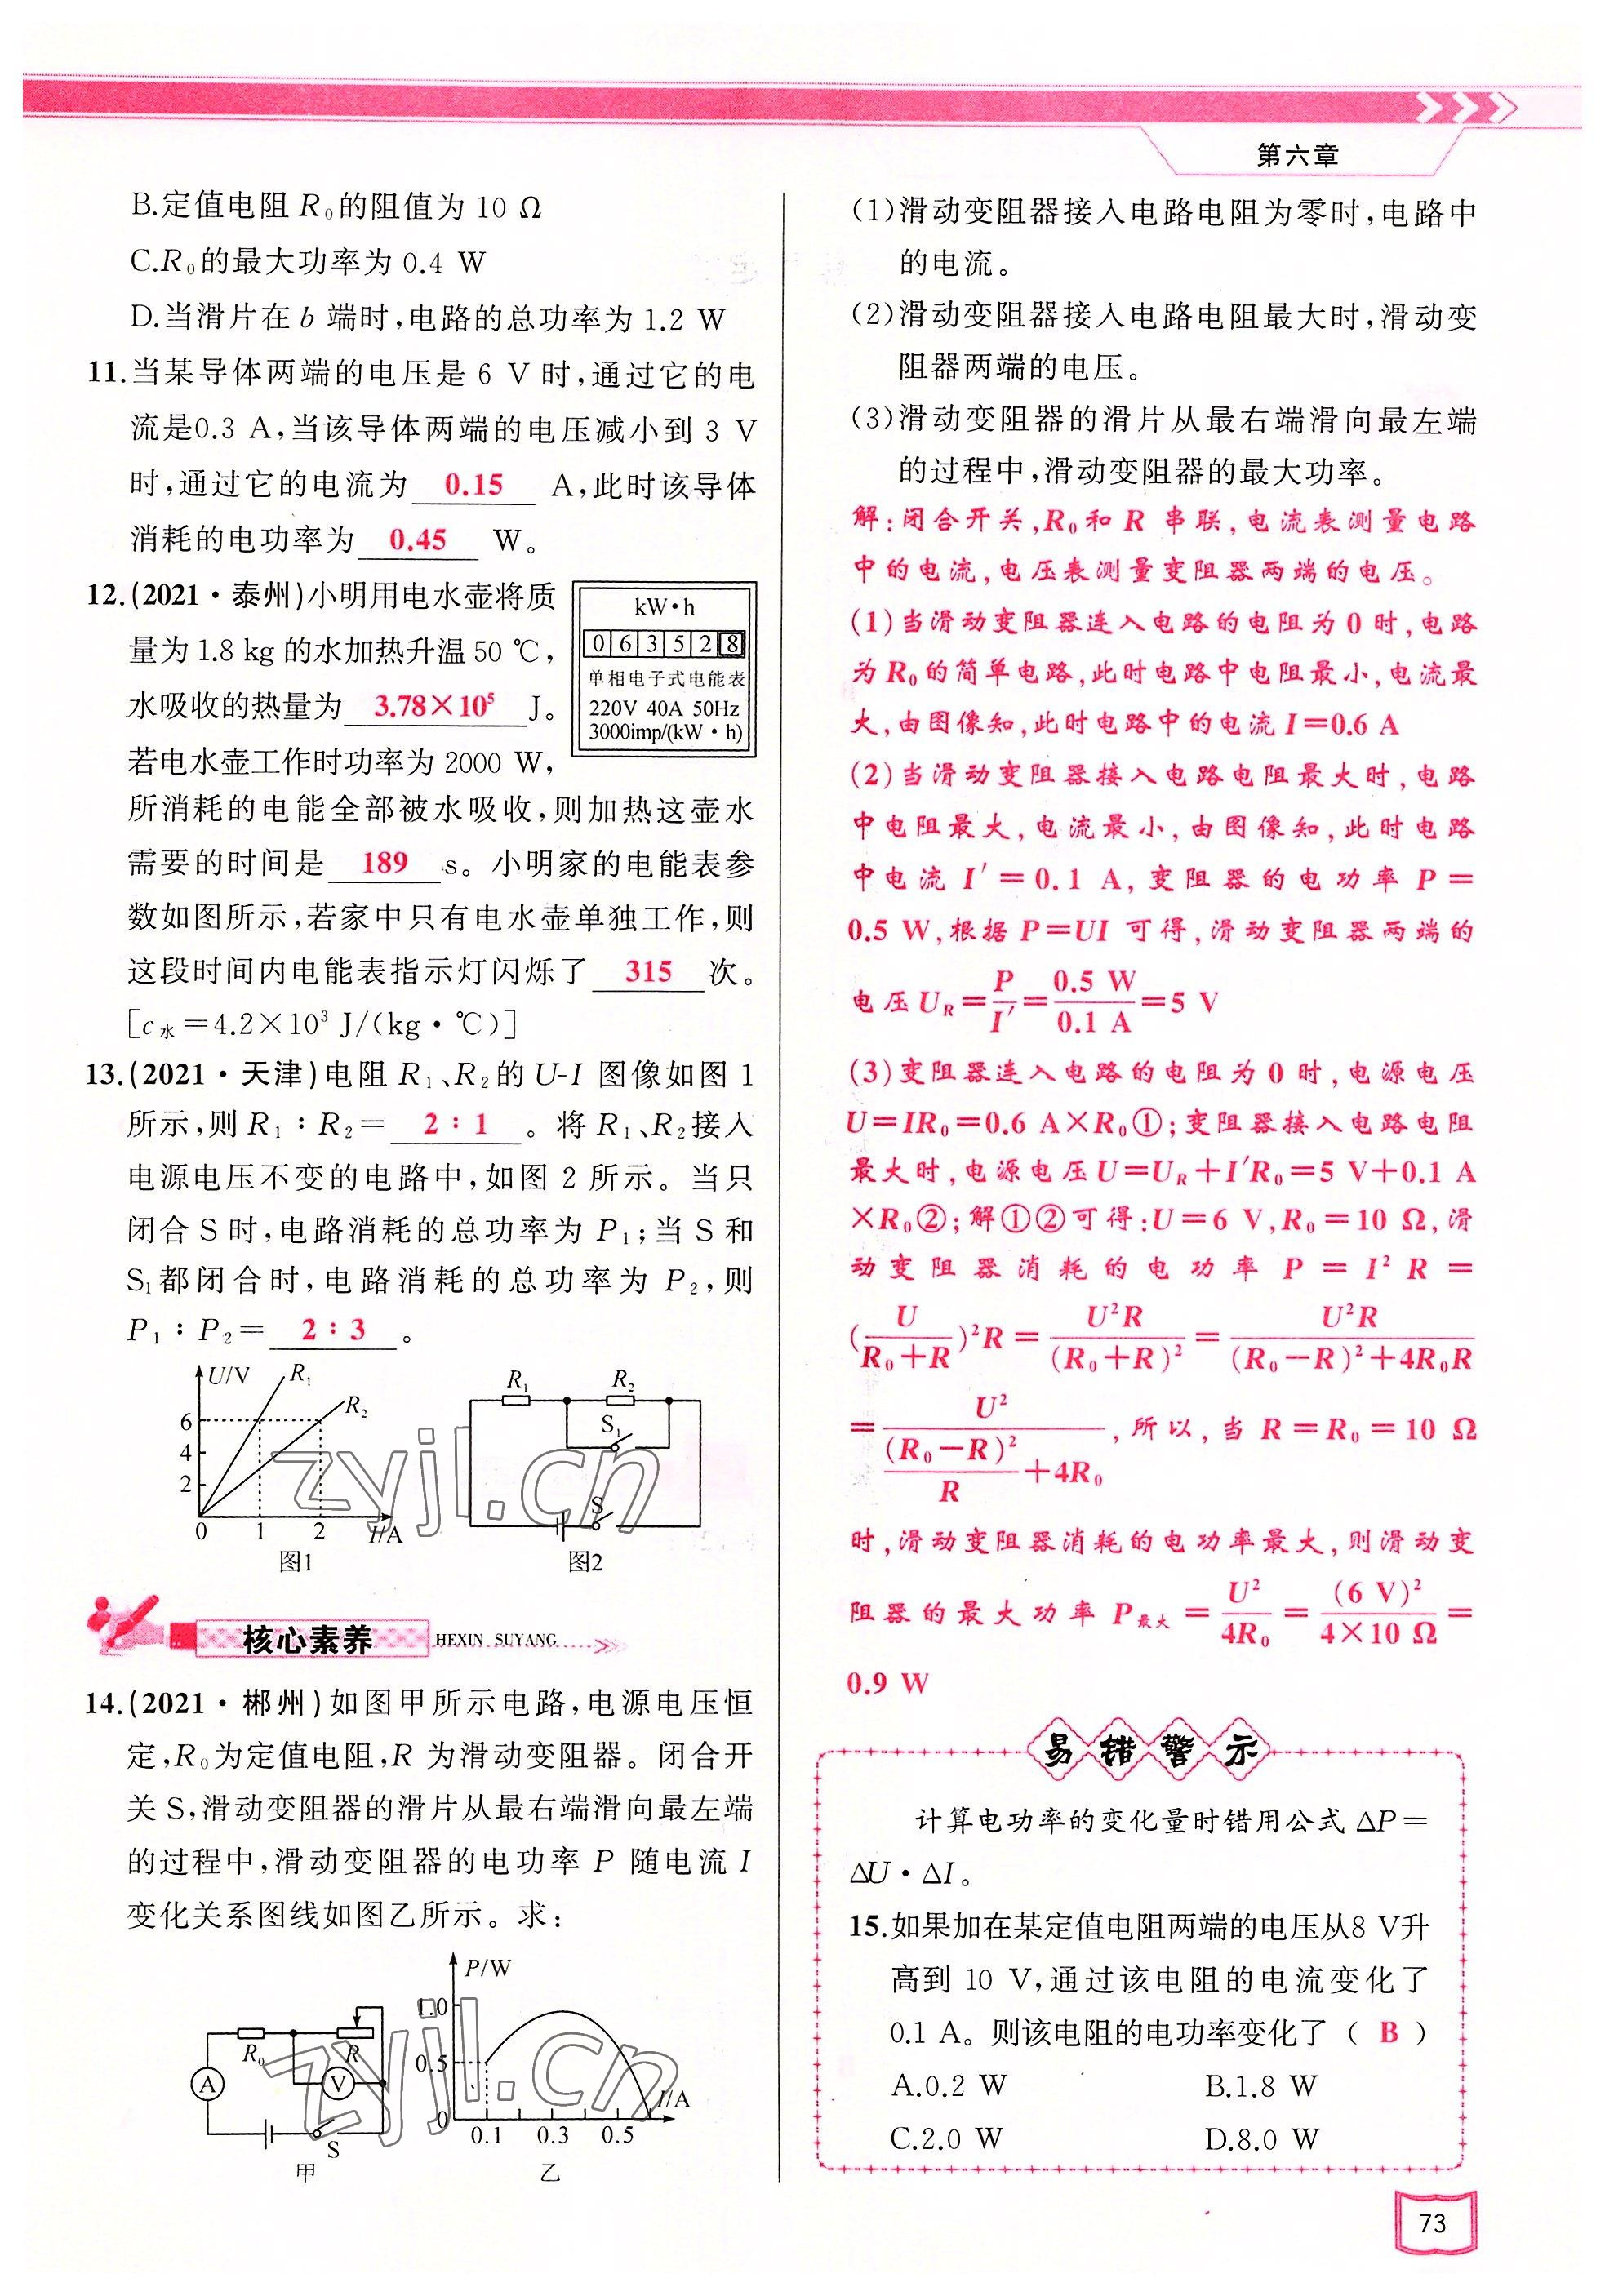 第六章
B.定值电阻 R₀的阻值为 10 Ω
C.R₀的最大功率为 0.4 W
D.当滑片在 b 端时,电路的总功率为 1.2 W
11.当某导体两端的电压是 6 V 时,通过它的电
流是0.3 A,当该导体两端的电压减小到 3 V
时,通过它的电流为 0.15 A,此时该导体
消耗的电功率为 0.45 W。
12.(2021·泰州)小明用电水壶将质
量为 1.8 kg 的水加热升温 50 ℃,
水吸收的热量为 3.78×10⁵ J。
若电水壶工作时功率为 2000 W,
kW·h
0 6 3 5 2 8
单相电子式电能表
220V 40A 50Hz
3000imp/(kW·h)
所消耗的电能全部被水吸收,则加热这壶水
需要的时间是 189 s。小明家的电能表参
数如图所示,若家中只有电水壶单独工作,则
这段时间内电能表指示灯闪烁了 315 次。
[c水=4.2×10³ J/(kg·℃)]
13.(2021·天津)电阻 R₁、R₂的 U-I 图像如图 1
所示,则 R₁∶R₂= 2∶1 。将 R₁、R₂接入
电源电压不变的电路中,如图 2 所示。当只
闭合 S 时,电路消耗的总功率为 P₁;当 S 和
S₁都闭合时,电路消耗的总功率为 P₂,则
P₁∶P₂= 2∶3 。
U/V R₁ R₂
6
4
2
0 1 2 I/A
图1
R₁ R₂
S₁
S
图2
zyjl.cn
核心素养 HEXIN SUYANG
14.(2021·郴州)如图甲所示电路,电源电压恒
定,R₀为定值电阻,R 为滑动变阻器。闭合开
关 S,滑动变阻器的滑片从最右端滑向最左端
的过程中,滑动变阻器的电功率 P 随电流 I
变化关系图线如图乙所示。求:
R₀ R
A V
S
甲
P/W
1.0
0.5
0 0.1 0.3 0.5 I/A
乙
zyjl.cn
(1)滑动变阻器接入电路电阻为零时,电路中
的电流。
(2)滑动变阻器接入电路电阻最大时,滑动变
阻器两端的电压。
(3)滑动变阻器的滑片从最右端滑向最左端
的过程中,滑动变阻器的最大功率。
解:闭合开关,R₀和 R 串联,电流表测量电路
中的电流,电压表测量变阻器两端的电压。
(1)当滑动变阻器连入电路的电阻为 0 时,电路
为 R₀的简单电路,此时电路中电阻最小,电流最
大,由图像知,此时电路中的电流 I=0.6 A
(2)当滑动变阻器接入电路电阻最大时,电路
中电阻最大,电流最小,由图像知,此时电路
中电流 I′=0.1 A,变阻器的电功率 P=
0.5 W,根据 P=UI 可得,滑动变阻器两端的
电压 U_R=P/I′=0.5 W/0.1 A=5 V
(3)变阻器连入电路的电阻为 0 时,电源电压
U=IR₀=0.6 A×R₀①;变阻器接入电路电阻
最大时,电源电压 U=U_R+I′R₀=5 V+0.1 A
×R₀②;解①②可得:U=6 V,R₀=10 Ω,滑
动变阻器消耗的电功率 P=I²R=
(U/(R₀+R))²R=U²R/(R₀+R)²=U²R/((R₀-R)²+4R₀R)
=U²/((R₀-R)²/R+4R₀),所以,当 R=R₀=10 Ω
时,滑动变阻器消耗的电功率最大,则滑动变
阻器的最大功率 P最大=U²/4R₀=(6 V)²/(4×10 Ω)=
0.9 W
易错警示
计算电功率的变化量时错用公式 ΔP=
ΔU·ΔI。
15.如果加在某定值电阻两端的电压从8 V升
高到 10 V,通过该电阻的电流变化了
0.1 A。则该电阻的电功率变化了 ( B )
A.0.2 W B.1.8 W
C.2.0 W D.8.0 W
73